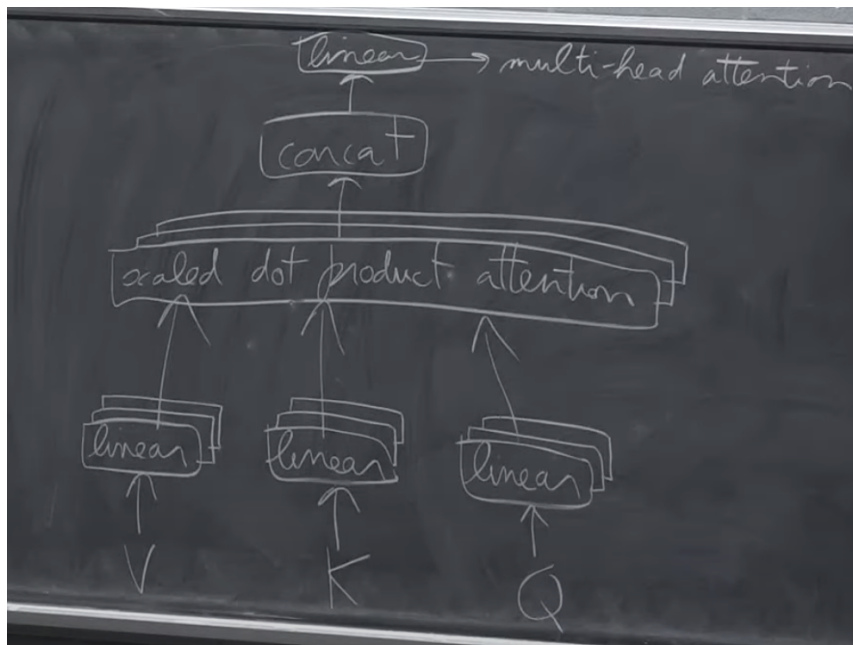 linear → multi-head attention
concat
scaled dot product attention
linear linear linear
V K Q